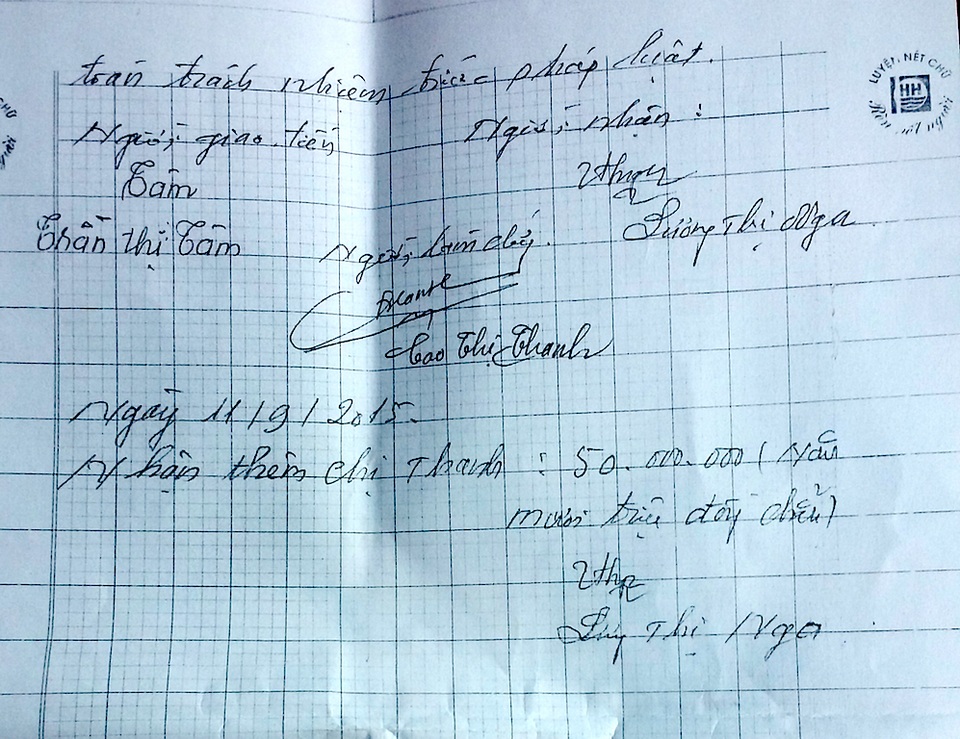 toàn trách nhiệm trước pháp luật.
Người giao tiền
Người nhận :
Tâm
Trần thị Tâm
Người làm chứng.
Lương Thị Nga
Cao Thị Thanh
Ngày 11/9/2015.
Nhận thêm chị Thanh : 50.000.000 (Năm
mươi triệu đồng chẵn)
Thị Nga
LUYỆN NÉT CHỮ
HH
Rèn nết người